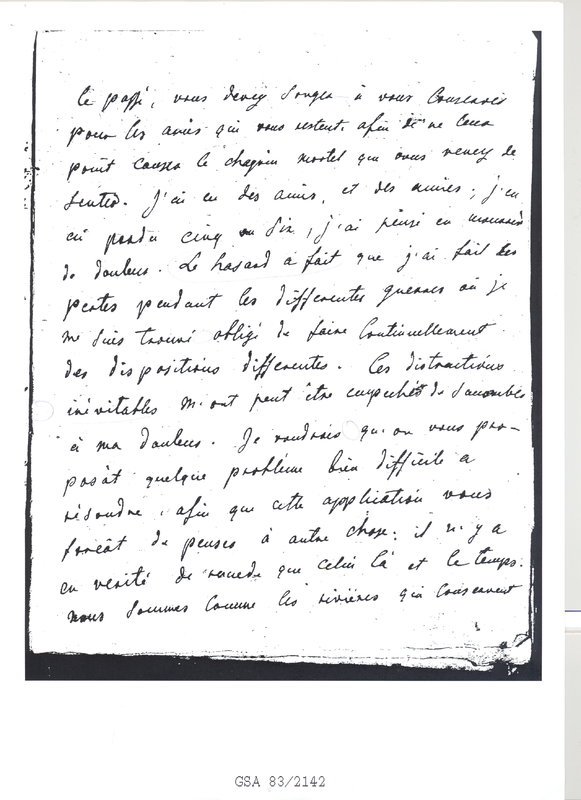 le passé, vous devez songer à vous conserver
pour les amis qui vous restent, afin de ne leur
point causer le chagrin mortel que vous venez de
sentir. J'ai eu des amis, et des amies; j'en
ai perdu cinq ou six, j'ai pensé en mourir
de douleur. Le hasard a fait que j'ai fait les
pertes pendant les differentes guerres où je
me suis trouvé obligé de faire continuellement
des dispositions differentes. Ces distractions
inévitables m'ont peut être empêché de succomber
à ma douleur. Je voudrois qu'on vous pro-
posât quelque problème bien difficile a
résoudre, afin que cette application vous
forcât de penser à autre chose; il n'y a
en verité de remede que celui là et le temps.
nous sommes comme les rivières qui conservent
GSA 83/2142